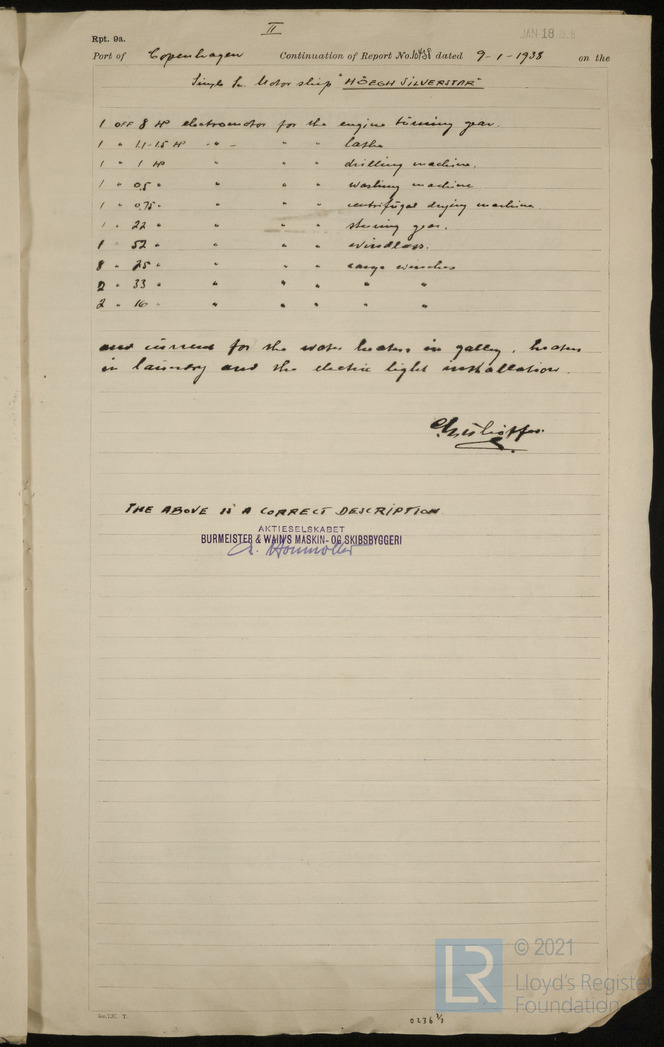 II
JAN 18
Rpt. 9a.
Port of Copenhagen Continuation of Report No. dated 9-1-1938 on the
Single Sc. Motor ship "HÖEGH SILVERSTAR"
1 OFF 8 HP electromotor for the engine turning gear.
1 " 1,1-1,5 HP " - " " lathe
1 " 1 HP " " " drilling machine.
1 " 0,5 " " " " washing machine
1 " 0,75 " " " " centrifugal drying machine
1 " 22 " " " " steering gear.
1 " 52 " " " " windlass.
8 " 25 " " " " cargo winches
2 " 33 " " " " " "
2 " 16 " " " " " "
and current for the water heaters in galley, heater
in laundry and the electric light installation.
THE ABOVE IS A CORRECT DESCRIPTION
AKTIESELSKABET
BURMEISTER & WAIN'S MASKIN- OG SKIBSBYGGERI
LR © 2021
Lloyd's Register
Foundation
0236